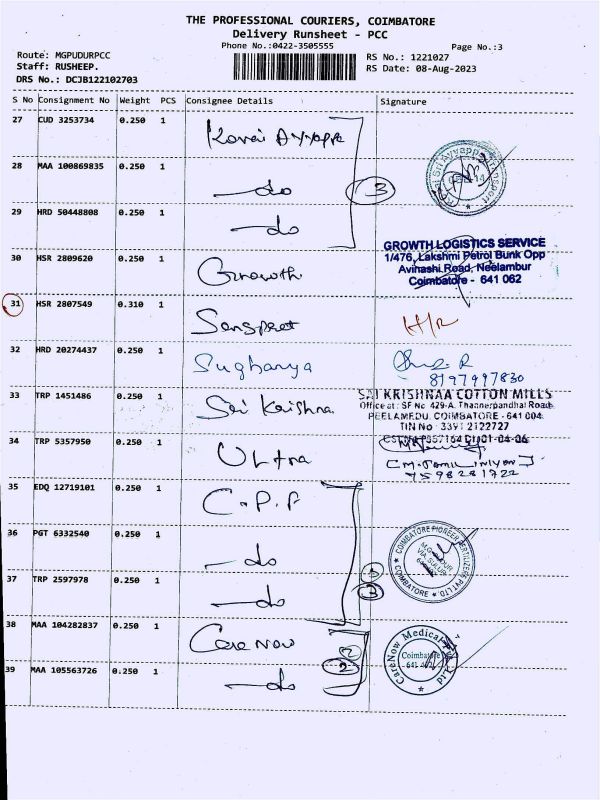 THE PROFESSIONAL COURIERS, COIMBATORE
Delivery Runsheet - PCC
Phone No.:0422-3505555
Page No.:3
Route: MGPUDURPCC
Staff: RUSHEEP.
DRS No.: DCJB122102703
RS No.: 1221027
RS Date: 08-Aug-2023
S No Consignment No Weight PCS Consignee Details Signature
27 CUD 3253734 0.250 1 Kovai Ayyappa
28 MAA 100869835 0.250 1 -do
3
29 HRD 50448808 0.250 1 -do
30 HSR 2809620 0.250 1 Growth
GROWTH LOGISTICS SERVICE
1/476, Lakshmi Petrol Bunk Opp
Avinashi Road, Neelambur
Coimbatore - 641 062
31 HSR 2807549 0.310 1 H/R
32 HRD 20274437 0.250 1 Sughanya
8197997830
33 TRP 1451486 0.250 1 Sri Krishna
SAI KRISHNAA COTTON MILLS
Office at : SF No 429-A, Thaneerpandhal Road
PEELAMEDU, COIMBATORE - 641 004
TIN No : 33912122727
34 TRP 5357950 0.250 1 Ultra
7598281722
35 EDQ 12719101 0.250 1 C.P.F
36 PGT 6332540 0.250 1 -do
COIMBATORE PIONEER FERTILIZERS PVT LTD.
COIMBATORE
37 TRP 2597978 0.250 1 -do
3
38 MAA 104282837 0.250 1 Care Now
CareNow Medical Pvt Ltd
Coimbatore
641 062
2
39 MAA 105563726 0.250 1 -do